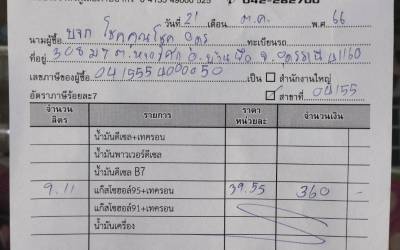 042-282700
วันที่ 21 เดือน ต.ค. พ.ศ. 66
นามผู้ซื้อ บจก โชคคูณโชค อุดร ทะเบียนรถ
ที่อยู่ 308 ม7 ต. อ.บ้านผือ จ.อุดรธานี 41160
เลขภาษีของผู้ซื้อ 0415554000050 เป็น สำนักงานใหญ่
อัตราภาษีร้อยละ7 สาขาที่ 04155
จำนวน ลิตร รายการ ราคา หน่วยละ จำนวนเงิน
น้ำมันดีเซล+เทครอน
น้ำมันพาวเวอร์ดีเซล
น้ำมันดีเซล B7
9.11 แก๊สโซฮอล์95+เทครอน 39.55 360 -
แก๊สโซฮอล์91+เทครอน
น้ำมันเครื่อง